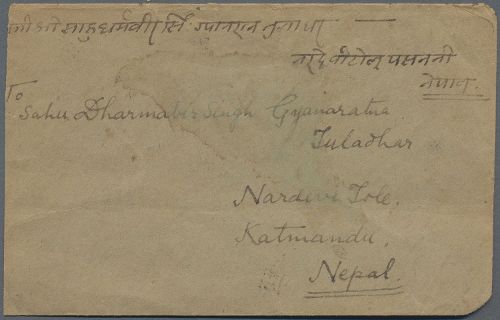 साहु धर्मवीर सिं
नरदेवी टोल्
नेपाल
To
Sahu Dharmabir Singh Gyanaratna
Tuladhar
Nardevi Tole.
Katmandu.
Nepal.